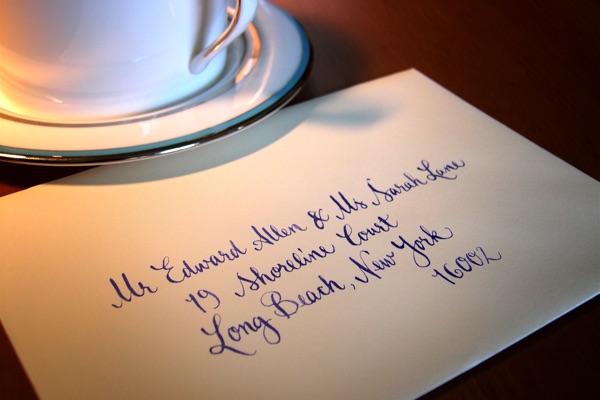 Mr Edward Allen & Ms Sarah Lane
19 Shoreline Court
Long Beach, New York
16002